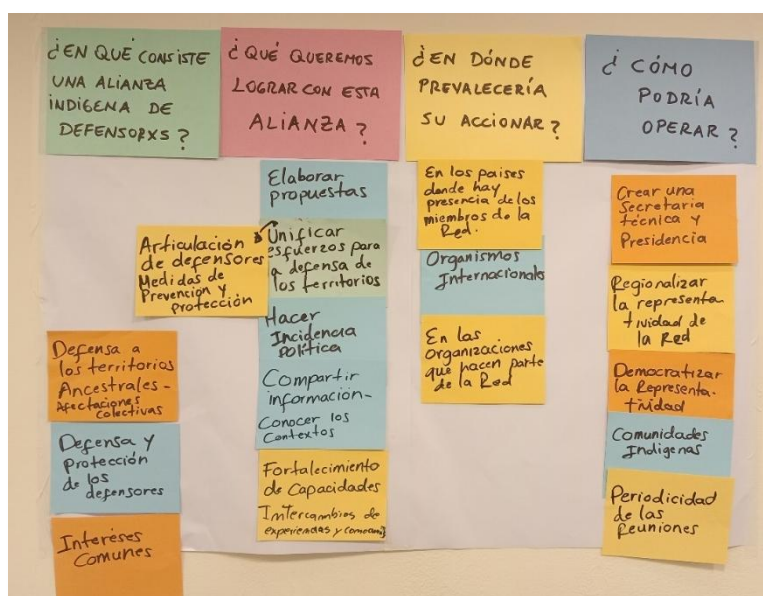 ¿EN QUÉ CONSISTE
UNA ALIANZA
INDÍGENA DE
DEFENSORXS?
Defensa a
los territorios
Ancestrales-
Afectaciones
colectivas
Defensa y
Protección
de los
defensores
Intereses
Comunes
¿QUÉ QUEREMOS
LOGRAR CON ESTA
ALIANZA?
Elaborar
propuestas
Articulación
de defensores
Medidas de
Prevención y
protección
Unificar
esfuerzos para
la defensa de
los territorios
Hacer
Incidencia
Política
Compartir
información-
Conocer los
Contextos
Fortalecimiento
de Capacidades
Intercambios de
experiencias y
¿EN DÓNDE
PREVALECERÍA
SU ACCIONAR?
En los paises
donde hay
presencia de los
miembros de la
Red.
Organismos
Internacionales
En las
Organizaciones
que hacen parte
de la Red
¿CÓMO
PODRÍA
OPERAR?
Crear una
Secretaria
técnica y
Presidencia
Regionalizar
la representa-
tividad de
la Red
Democratizar
la Representa-
tividad
Comunidades
Indigenas
Periodicidad
de las
Reuniones